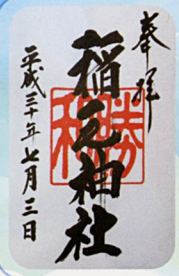 奉拝
稲毛神社
勝利
平成三十年七月三日